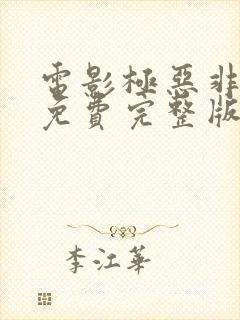 電影極惡非
免費完整版
李江華